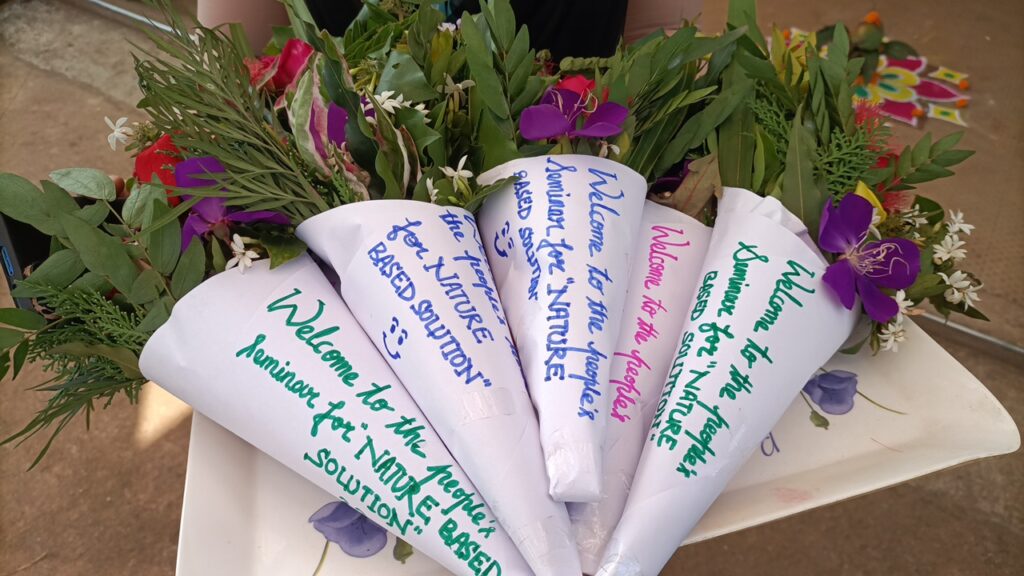 Welcome to the people's
Seminar for "NATURE BASED
SOLUTION"
the people's
for "NATURE
BASED SOLUTION"
Welcome to the people's
Seminar for "NATURE
BASED SOLUTION
Welcome to the people's
Welcome to
Seminar to the people's
BASED for "NATURE
SOLUTION"